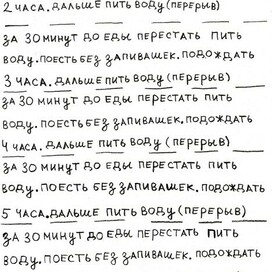 2 ЧАСА. ДАЛЬШЕ ПИТЬ ВОДУ (ПЕРЕРЫВ)
ЗА 30 МИНУТ ДО ЕДЫ ПЕРЕСТАТЬ ПИТЬ
ВОДУ. ПОЕСТЬ БЕЗ ЗАПИВАШЕК. ПОДОЖДАТЬ
3 ЧАСА. ДАЛЬШЕ ПИТЬ ВОДУ (ПЕРЕРЫВ)
ЗА 30 МИНУТ ДО ЕДЫ ПЕРЕСТАТЬ ПИТЬ
ВОДУ. ПОЕСТЬ БЕЗ ЗАПИВАШЕК. ПОДОЖДАТЬ
4 ЧАСА. ДАЛЬШЕ ПИТЬ ВОДУ (ПЕРЕРЫВ)
ЗА 30 МИНУТ ДО ЕДЫ ПЕРЕСТАТЬ ПИТЬ
ВОДУ. ПОЕСТЬ БЕЗ ЗАПИВАШЕК. ПОДОЖДАТЬ
5 ЧАСА. ДАЛЬШЕ ПИТЬ ВОДУ (ПЕРЕРЫВ)
ЗА 30 МИНУТ ДО ЕДЫ ПЕРЕСТАТЬ ПИТЬ
ВОДУ. ПОЕСТЬ БЕЗ ЗАПИВАШЕК. ПОДОЖДАТЬ